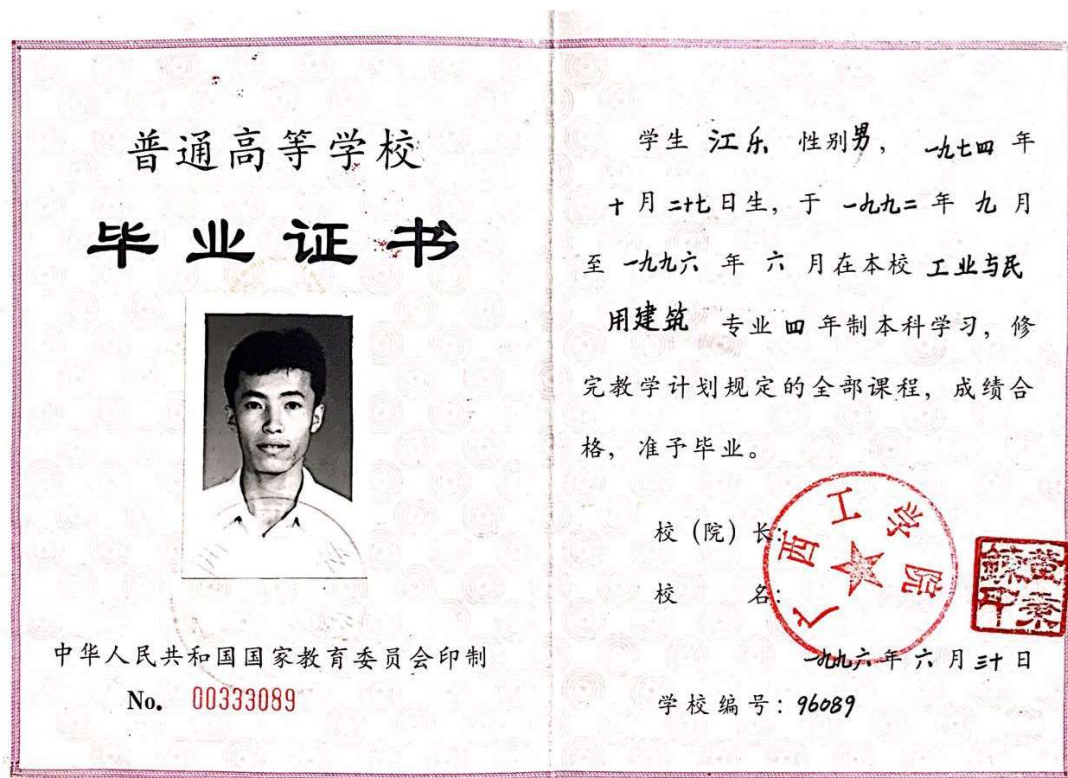 普通高等学校
毕业证书
中华人民共和国国家教育委员会印制
No. 00333089
学生 江乐 性别男, 一九七四 年
十月二十七日生, 于 一九九二 年 九 月
至 一九九六 年 六 月在本校 工业与民
用建筑 专业 四 年制本科学习, 修
完教学计划规定的全部课程, 成绩合
格, 准予毕业。
校(院)长:
校 名:
广西工学院
一九九六年六月三十日
学校编号: 96089